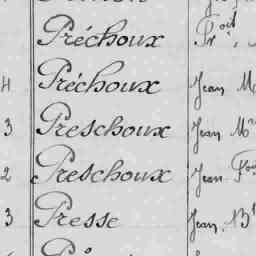 Préchoux
4 Préchoux Jean M
3 Preschoux Jean Mie
2 Preschoux Jean Fois
3 Presse Jean Bte